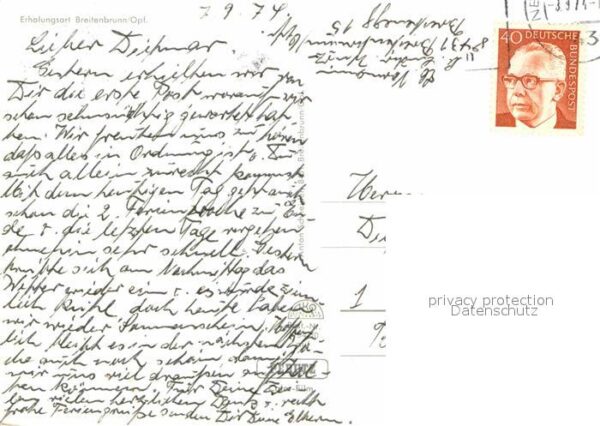 Erholungsort Breitenbrunn/Opf.
7.9.74
Lieber Dietmar.
Gestern erhielten wir von
Dir die erste Post worauf wir
schon sehnsüchtig gewartet hat
ten. Wir freuten uns zu hören
daß alles in Ordnung ist u. Du
auch allein zurecht kommst
Mit dem heutigen Tag geht auch
schon die 2. Ferienwoche zu En
de u. die letzten Tage vergehen
ohnehin sehr schnell. Gestern
trübte sich am Nachmittag das
Wetter wieder ein u. es wurde ziem
lich kühl, doch heute haben
wir wieder Sonnenschein. Hoffent
lich bleibt es in der nächsten Wo
che auch noch schön damit
wir uns viel draußen aufhal
ten können. Für Deine Zei
len vielen herzlichen Dank u. recht
frohe Feriengrüße senden Dir Deine Eltern.
8431 Breitenbrunn/Opf.
Breitenegg 15
40 DEUTSCHE
BUNDESPOST
Herrn
1
privacy protection
Datenschutz